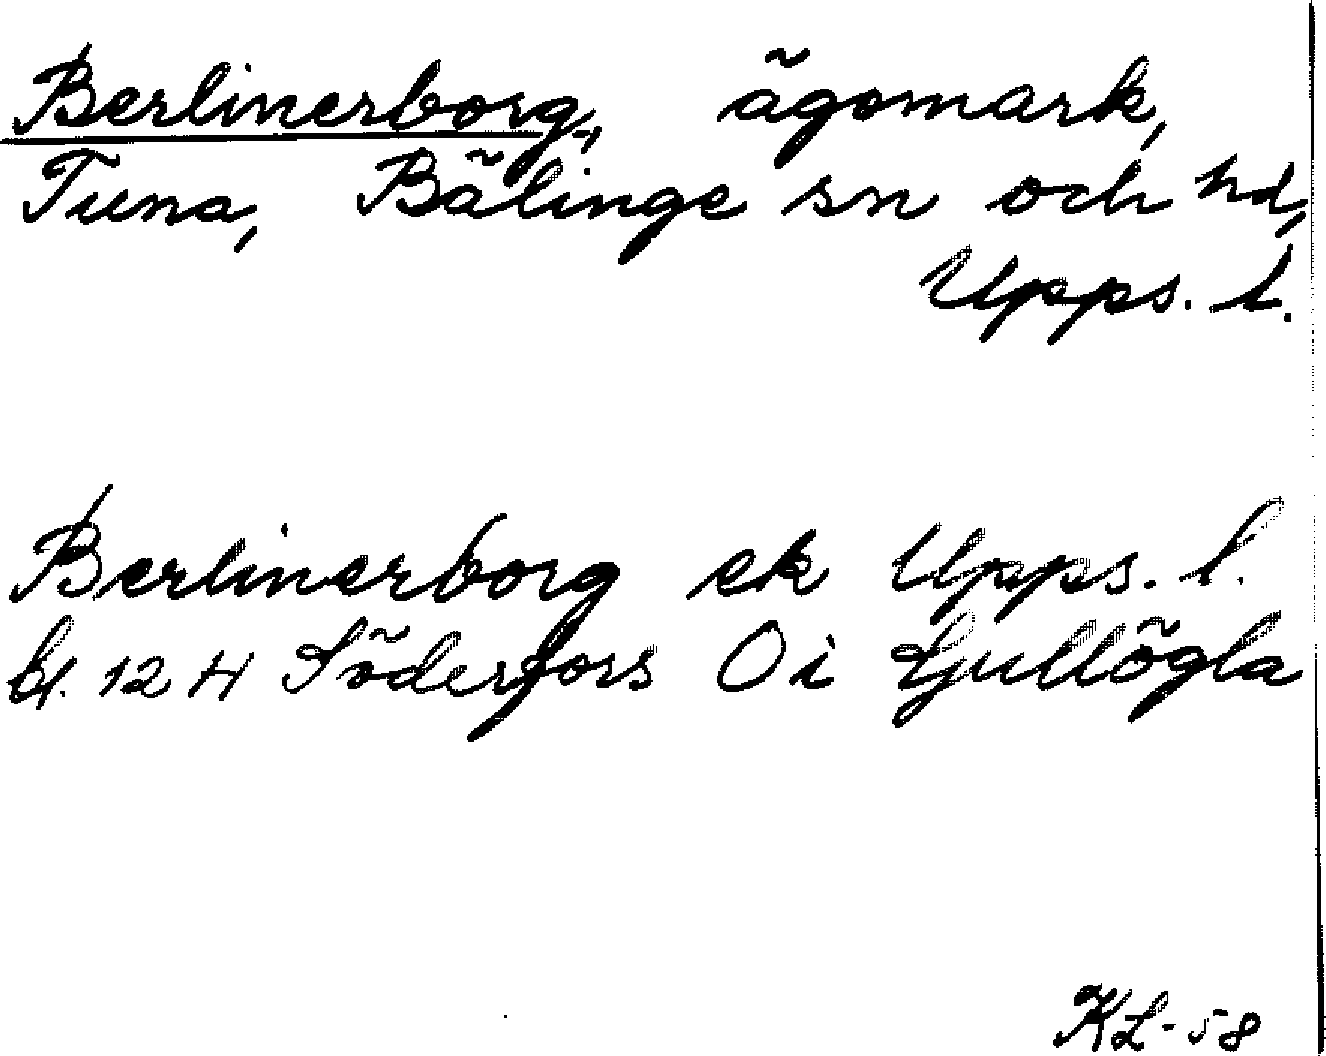 Berlinerborg, ägomark,
Tuna, Bälinge sn och hd,
Upps. l.
Berlinerborg ek Upps. l.
bl. 12 H Söderfors Oi Ljullögla
KL-58